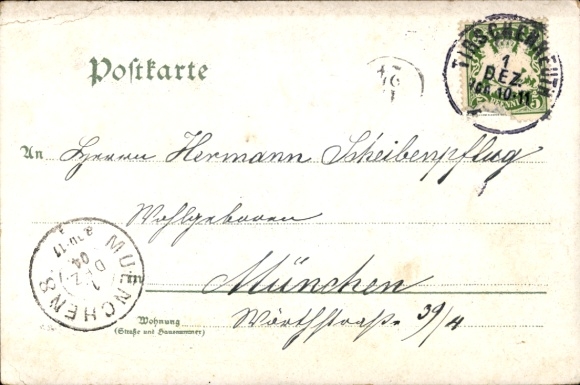 Postkarte
TIRSCHENREUTH
1
DEZ.
10-11
5
An Herrn Hermann Scheibenpflug
Wohlgeboren
München
Wohnung
(Straße und Hausnummer)
Wörthstraße 39/4
MUENCHEN 8.
1
DEZ.
04